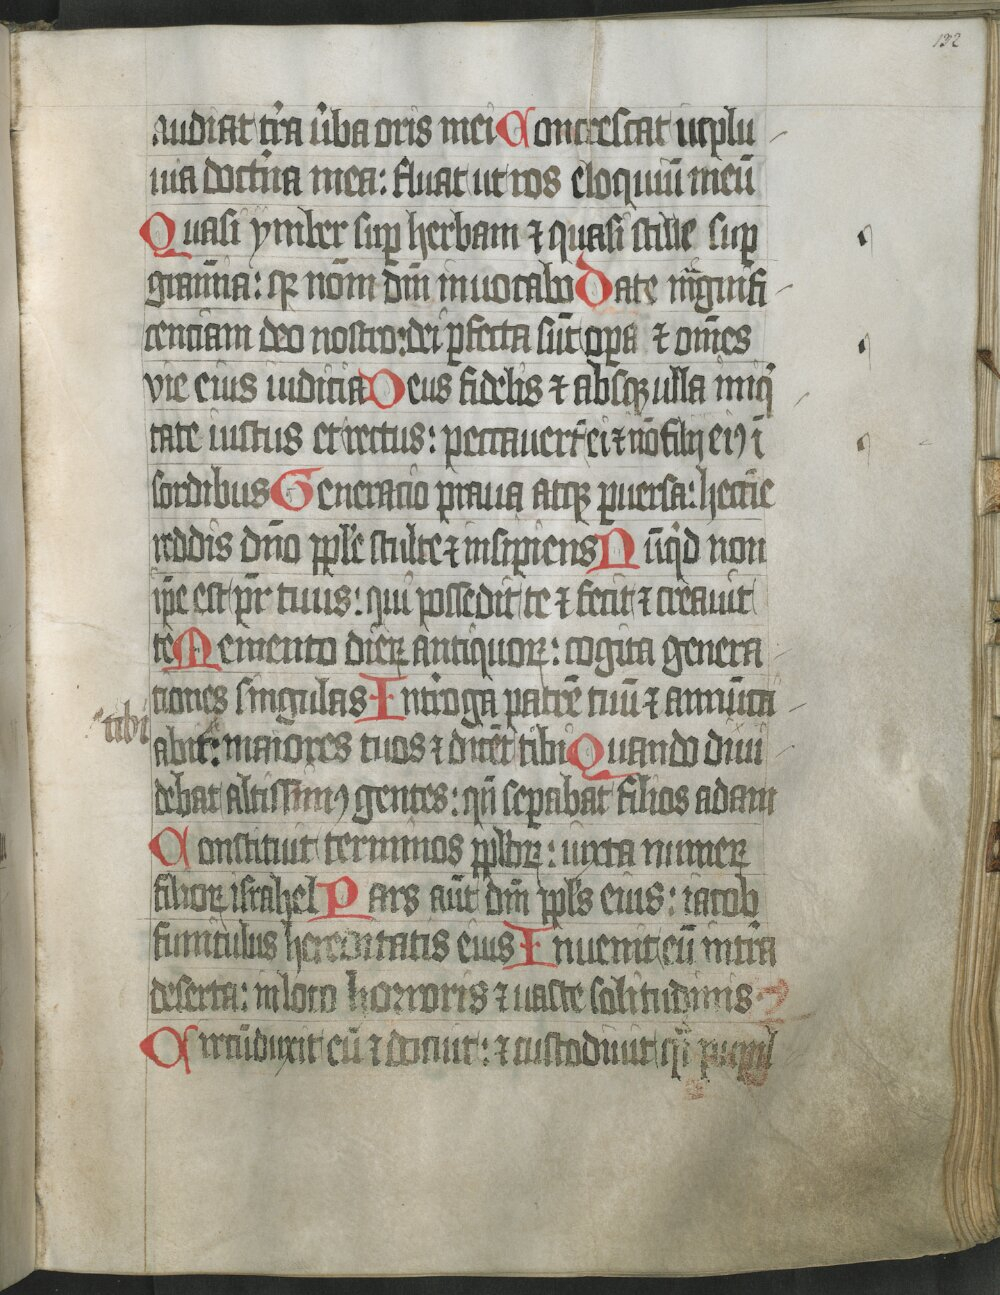 192
audiat tr̃a ũba oris mei Concrescat ut plu
uia doctⁱna mea: fluat ut ros eloquiũ meũ
Quasi ymber suꝑ herbam ⁊ quasi stille suꝑ
gramĩa: qꝛ nom̃ dñi inuocabo Date mãgnifi
centiam deo nostro: dei ꝑfecta sũt oꝑa ⁊ om̃es
vie eius iudicia Deus fidelis ⁊ absqꝫ ulla iniqⁱ
tate iustus et rectus: peccauerт̃ ei ⁊ nõ filij eiꝰ ĩ
sordibus Generatio praua atqꝫ ꝑuersa: heccĩe
reddis dño pp̃le stulte ⁊ insipiens Nũqⁱd non
ip̃e est pr̃ tuus: qui possedit te ⁊ fecit ⁊ creauit
te Memento dieꝝ antiquoꝝ: cogita genera
tiones singulas Intr̃oga patrẽ tuũ ⁊ annũcia
tibi
abit: maiores tuos ⁊ dicẽt tibi Quando diui
debat altissimꝰ gentes: qñ seꝑabat filios adam
Constituit terminos pp̃loꝝ: iuxta numeꝝ
filioꝝ israhel Pars aũt dñi pp̃ls eius: iacob
funiculus hereditatis eius Inuenit eũ in tr̃a
deserta: in loco horroris ⁊ uaste solitudinis
Circũduxit eũ ⁊ docuit: ⁊ custodiuit qⁱ pupil